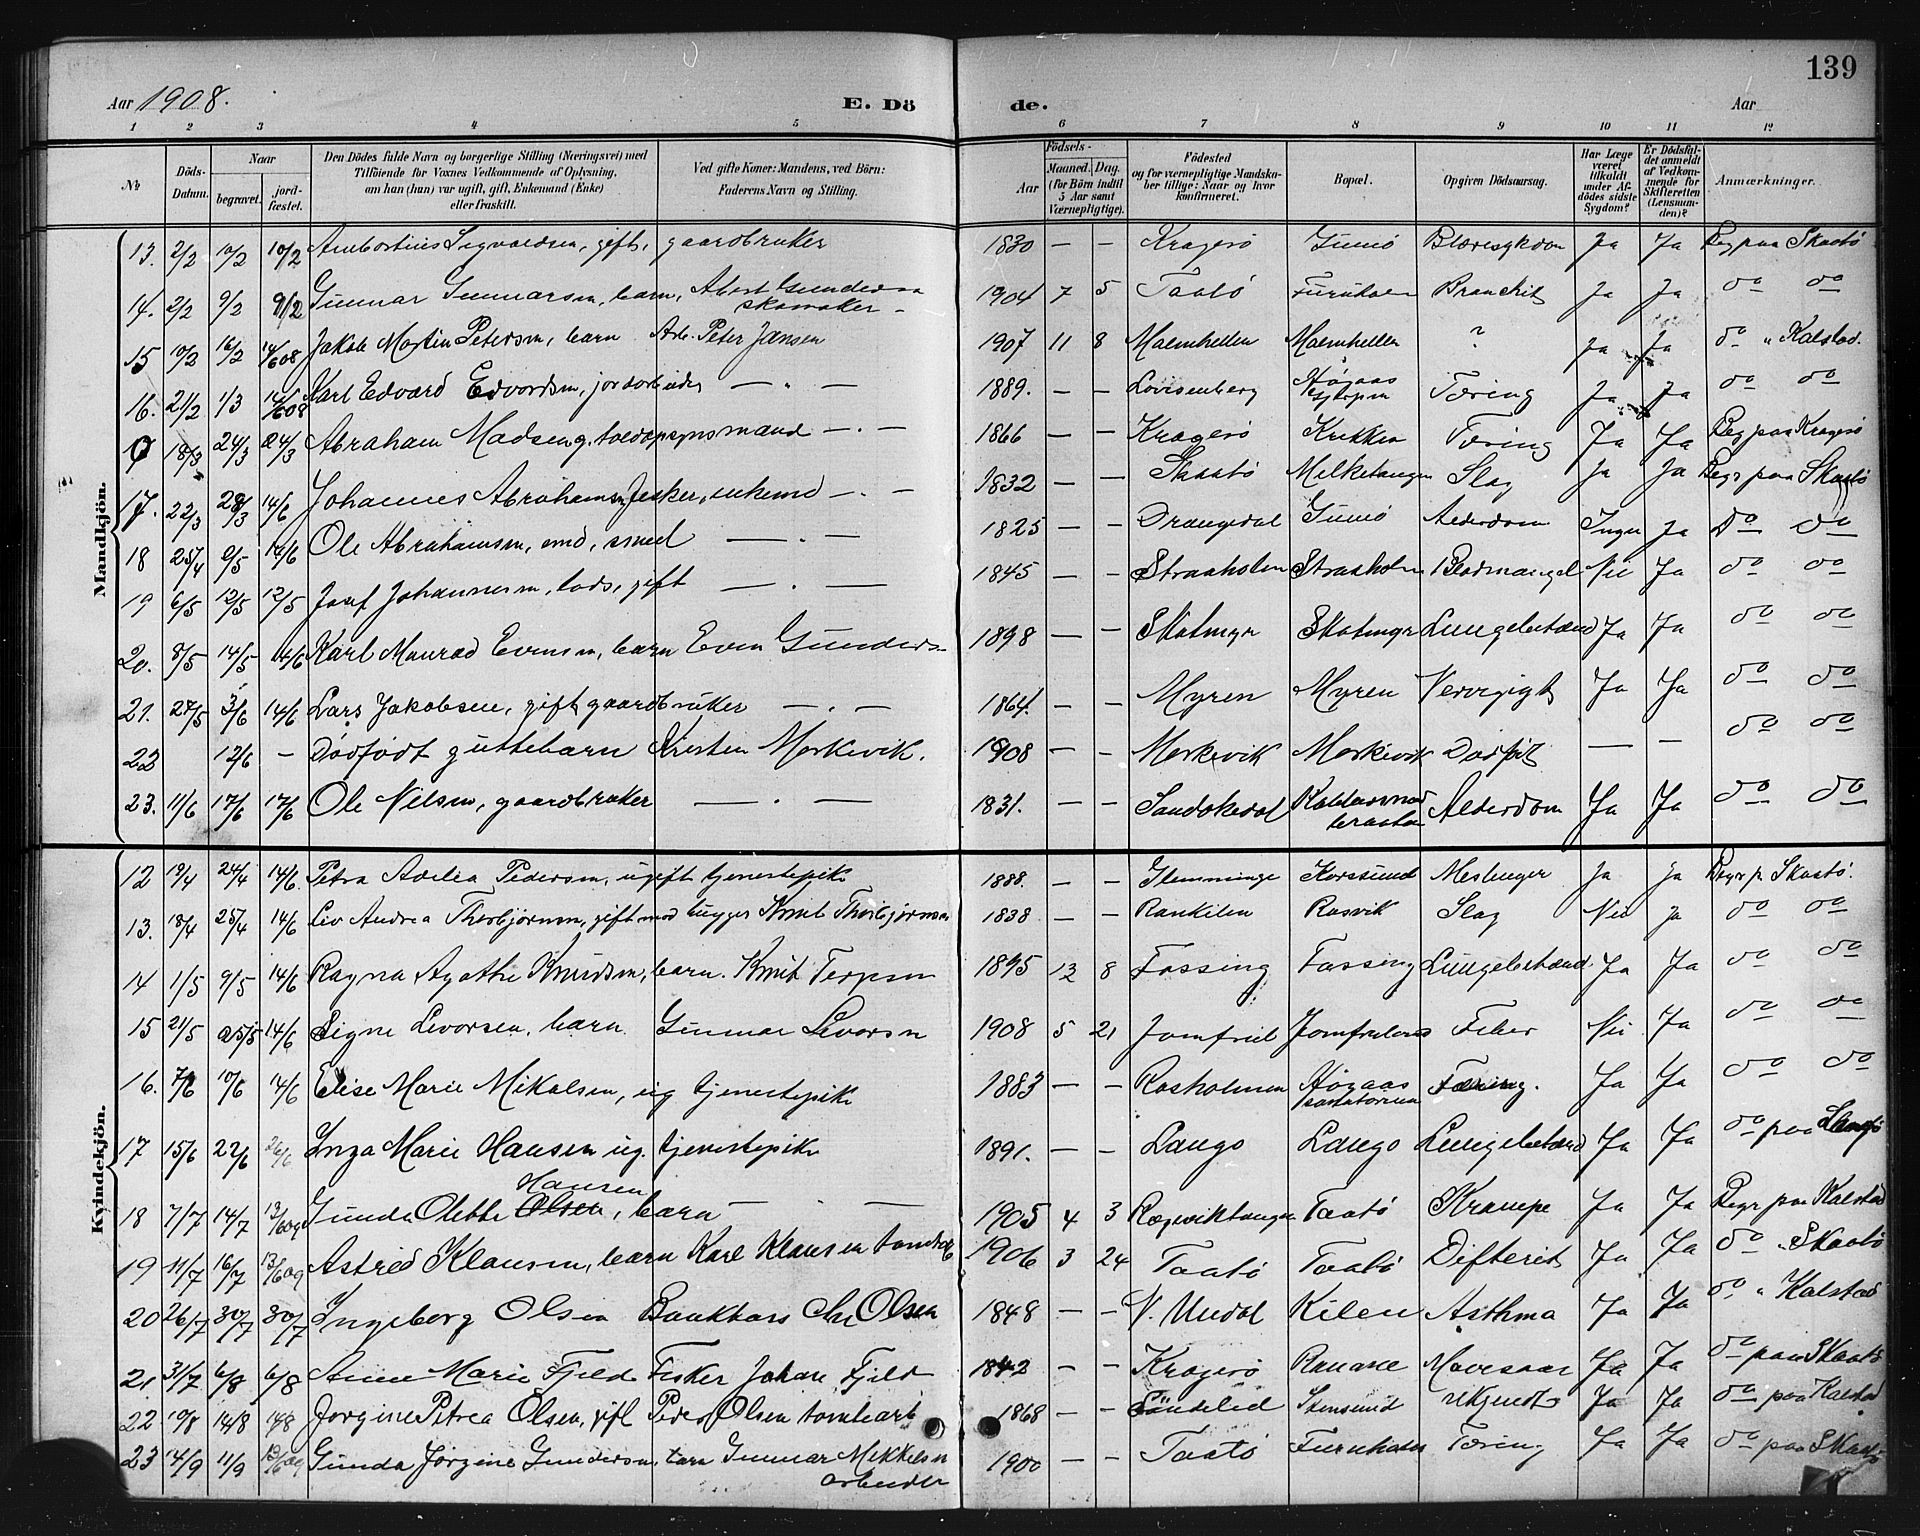 139
Aar 1908. E. Dö de. Aar
1 2 3 4 5 6 7 8 9 10 11 12
No Döds-Datum. Naar begravet. jordfæstet. Den Dödes fulde Navn og borgerlige Stilling (Næringsvei) med Tilföiende for Voxnes Vedkommende af Oplysning, om han (hun) var ugift, gift, Enkemand (Enke) eller fraskilt. Ved gifte Koner: Mandens, ved Börn: Faderens Navn og Stilling. Födsels- Aar Maaned. Dag. (for Börn indtil 5 Aar samt Værnepligtige). Födested og for værnepligtige Mandskaber tillige: Naar og hvor konfirmeret. Bopæl. Opgiven Dödsaarsag. Har Læge været tilkaldt under Afdödes sidste Sygdom? Er Dödsfaldet anmeldt af Vedkommende for Skifteretten (Lensmanden)? Anmærkninger.
Mandkjön.
13. 2/2 10/2 10/2 gift, gaardbruker 1830 — — Kragerø Gumø Blæresykdom Ja Ja Beg paa Skaatø
14. 2/2 9/2 9/2 Gunnar Gunnarsen, barn, 1904 7 5 Taatø Ja Ja do do
15 10/2 16/2 14/6 08 Jakob Martin Petersen, barn Arb. Peter Jansen 1907 11 8 Malmhellen Malmhellen ? Ja Ja do " Kalstad.
16. 21/2 1/3 14/6 08 Karl Edvard Edvardsen, jordarbeider — " — 1889. Lovisenberg Høgaas Tæring Ja Ja do do
18/3 24/3 24/3 Abraham Madsen g. toldopsynsmand — " — 1866 — — Kragerø Krikken Tæring Ja Ja Beg paa Kragerø
17. 22/3 28/3 14/6 Johannes Abrahamsen, fisker, enkemd — " — 1832 — — Skaatø Slag Ja Ja Begr paa Skaatø
18 25/4 2/5 14/6 Ole Abrahamsen, smed — " — 1825 — — Drangedal Gumø Alderdom Ingen Ja Do do
19 6/5 12/5 12/5 Josef Johannesen, lods, gift — " — 1845 — — Straaholmen Straaholmen Blodmangel Nei Ja do do
20. 8/5 14/5 14/6 Karl Monrad Evensen, barn Even Gundersen 1898 — — Skotmyr Skotmyr Lungebetænd Ja Ja do do
21. 27/5 3/6 14/6 Lars Jakobsen, gift gaardbruker — " — 1864. — — Myren Myren Ja Ja do do
22 12/6 — Dødfødt guttebarn Kresten Morkevik. 1908 — — Morkevik Morkevik Dødfødt — — do do
23. 11/6 17/6 17/6 Ole Nilsen, gaardbruker — " — 1831. — — Sandøkedal Alderdom Ja Ja do do
Kvindekjön.
12 19/4 24/4 14/6. Petra Adelia Pedersen, ugift tjenestepike 1888. — — Glemminge Korssund Meslinger Ja Ja Begr p. Skaatø.
13. 18/4 25/4 14/6 Liv Andrea Thorbjørnsen, gift med bygger Knut Thorbjørnsen 1838 — — Rankilen Rosvik Slag Nei Ja do do
14 1/5 9/5 14/6 Ragna Agathe Knudsen, barn. Knut Terjesen 1895 12 8 Fossing Fossing Lungebetænd Ja Ja do do
15 21/5 25/5 14/6 Signe Levorsen, barn. Gunnar Levorsen 1908 5 21 Nei Ja do do
16. 7/6 10/6 14/6 Elise Marie Mikalsen, ug tjenestepike 1883 — — Rosholmen Høgaas sanatorium Tæring. Ja Ja do do
17 15/6 22/6 26/6 Inga Marie Hansen ug. tjenestepike 1891. — — Langø Langø Lungebetænd Ja Ja do paa Langø
18 7/7 14/7 13/6 09 Gunda Olette Olsen Hansen, barn — " — 1905 4 3 Taatø Krampe Ja Ja Begr paa Kalstad
19 11/7 16/7 13/6 09 Astrid Klausen, barn Karl Klausen 1906 3 24 Taatø Taatø Difterit Ja Ja do " Skaatø
20 26/7 30/7 30/7 Ingeborg Olsen Baatbas Chr Olsen 1848 — — V. Undal Kilen Asthma Ja Ja do " Kalstad
21 31/7 6/8 6/8 Anne Marie Fjeld Fisker Johan Fjeld 1842 — — Kragerø Mavesaar Ja Ja do paa Skaatø
22 10/8 14/8 14/8 Jørgine Petrea Olsen, gift Peder Olsen tømarb 1868 — — Søndeled Stensund ukjendt Ja Ja do paa Kalstad
23 4/9 11/9 13/6 09 Gunda Jørgine Gundersen, barn Gunnar Mikkelsen arbeider 1900 — — Taatø Furuholm Tæring Ja Ja do paa Skaatø